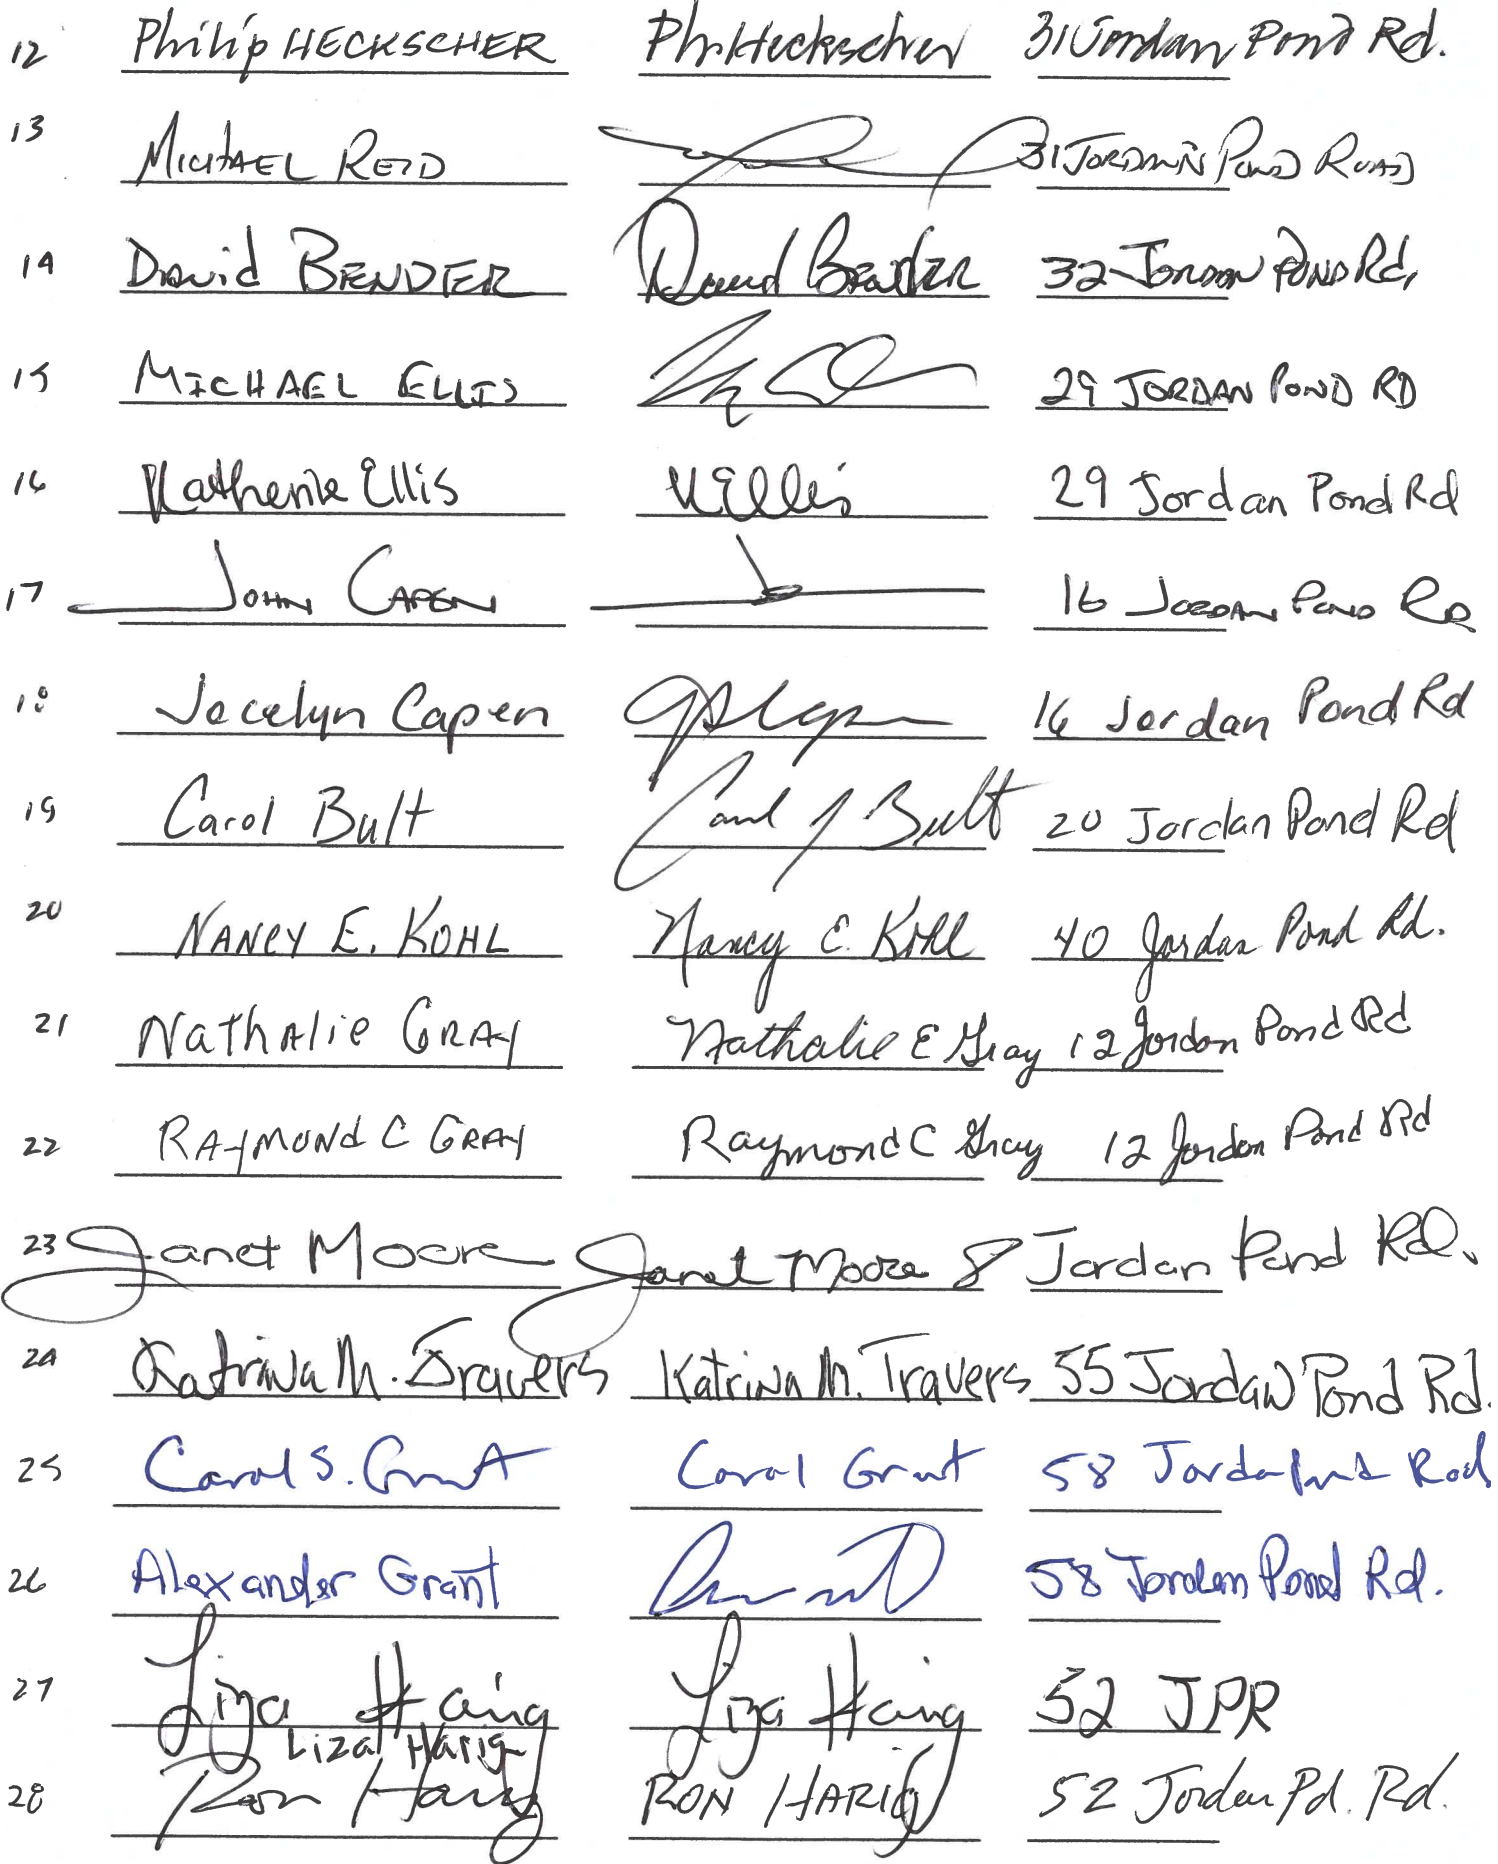 12 Philip HECKSCHER Ph. Heckscher 31 Jordan Pond Rd.
13 MICHAEL REID 31 JORDAN POND ROAD
14 David BENDER David BENDER 32 JORDAN POND Rd.
15 MICHAEL ELLIS 29 JORDAN POND RD
16 Katherine Ellis K Ellis 29 Jordan Pond Rd
17 JOHN CAPEN 16 JORDAN POND RD
18 Jocelyn Capen 16 Jordan Pond Rd
19 Carol Bult Carol J Bult 20 Jordan Pond Rd
20 NANCY E. KOHL Nancy E. Kohl 40 Jordan Pond Rd.
21 Nathalie GRAY Nathalie E Gray 12 Jordan Pond Rd
22 RAYMOND C GRAY Raymond C Gray 12 Jordan Pond Rd
23 Janet Moore Janet Moore 8 Jordan Pond Rd.
24 Katrina M. Travers Katrina M. Travers 55 Jordan Pond Rd.
25 Carol S. Grant Carol Grant 58 Jordan Pond Road
26 Alexander Grant 58 Jordan Pond Rd.
27 Liza Harig Liza Harig 52 JPR
Liza Harig
28 Ron Harig RON HARIG 52 Jordan Pd. Rd.